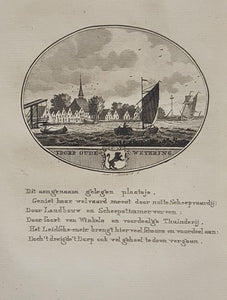 'T DORP OUDE WETERING.
Dit aengenaam gelegen plaatsje,
Geniet haar welvaard meest door nutte Scheepvaardy;
Door Landbouw en Scheepstimmerwerven.
Door soort van Winkels en voordeelge Thuinderij.
Het Leidsche-meir brengt hier veel schoons en voordeel aan:
Doch't dreigt 'Dorp ook wel geheel te doen vergaan.